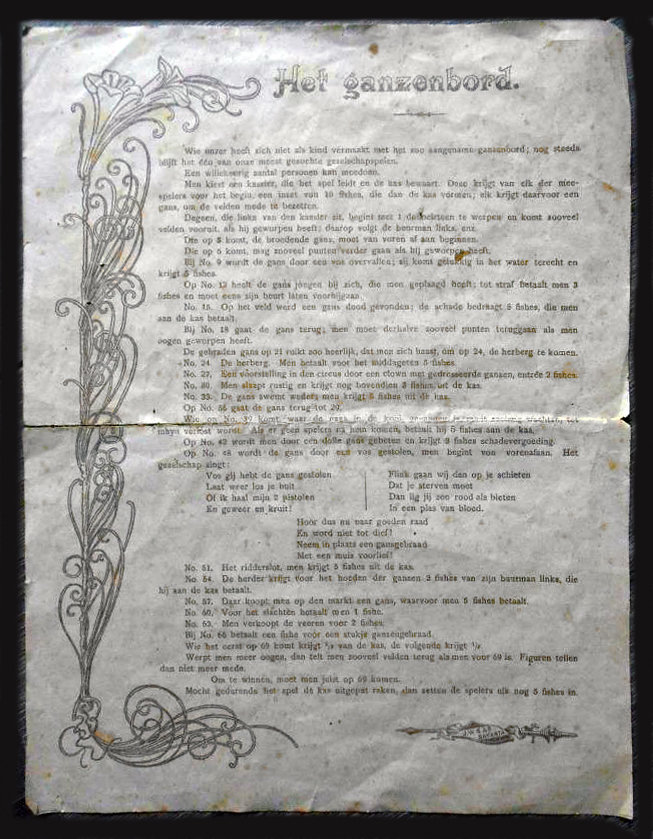 Het ganzenbord.
Wie onzer heeft zich niet als kind vermaakt met het zoo aangename ganzenbord; nog steeds
blijft het één van onze meest gezochte gezelschapspelen.
Een willekeurig aantal personen kan meedoen.
Men kiest een kassier, die het spel leidt en de kas bewaart. Deze krijgt van elk der mee-
spelers voor het begin een inzet van 10 fishes, die dan de kas vormen; elk krijgt daarvoor een
gans, om de velden mede te bezetten.
Degeen, die links van den kassier zit, begint met 1 dobbelsteen te werpen en komt zooveel
velden vooruit, als hij geworpen heeft; daarop volgt de buurman links, enz.
Die op 5 komt, de broedende gans, moet van voren af aan beginnen.
Die op 6 komt, mag zooveel punten verder gaan als hij geworpen heeft.
Bij No. 9 wordt de gans door een vos overvallen; zij komt gelukkig in het water terecht en
krijgt 5 fishes.
Op No. 12 heeft de gans jongen bij zich, die men geplaagd heeft; tot straf betaalt men 3
fishes en moet eens zijn beurt laten voorbijgaan.
No. 15. Op het veld werd een gans dood gevonden; de schade bedraagt 5 fishes, die men
aan de kas betaalt.
Bij No. 18 gaat de gans terug; men moet derhalve zooveel punten teruggaan als men
oogen geworpen heeft.
De gebraden gans op 21 ruikt zoo heerlijk, dat men zich haast, om op 24, de herberg te komen.
No. 24. De herberg. Men betaalt voor het middageten 5 fishes.
No. 27. Een voorstelling in den circus door een clown met gedresseerde ganzen, entrée 2 fishes.
No. 30. Men slaapt rustig en krijgt nog bovendien 3 fishes uit de kas.
No. 33. De gans zwemt weders men krijgt 5 fishes uit de kas.
Op No. 36 gaat de gans terug tot 20.
Wie op No. 39 komt, waar de gans in de kooi zoolang wachten, tot
verlost wordt. Als er geen spelers na hem komen, betaalt hij 5 fishes aan de kas.
Op No. 42 wordt men door een dolle gans gebeten en krijgt 3 fishes schadevergoeding.
Op No. 48 wordt de gans door een vos gestolen, men begint van vorenafaan. Het
gezelschap zingt:
Vos gij hebt de gans gestolen
Laat weer los je buit
Of ik haal mijn 2 pistolen
En geweer en kruit!
Flink gaan wij dan op je schieten
Dat je sterven moet
Dan lig jij zoo rood als bieten
In een plas van bloed.
Hoor dus nu naar goeden raad
En word niet tot dief!
Neem in plaats een gansgebraad
Met een muis voorlief!
No. 51. Het ridderslot, men krijgt 5 fishes uit de kas.
No. 54. De herder krijgt voor het hoeden der ganzen 2 fishes van zijn buurman links, die
hij aan de kas betaalt.
No. 57. Daar koopt men op den markt een gans, waarvoor men 5 fishes betaalt.
No. 60. Voor het slachten betaalt men 1 fishe.
No. 63. Men verkoopt de veeren voor 2 fishes.
Bij No. 66 betaalt een fishe voor een stukje ganzengebraad.
Wie het eerst op 69 komt krijgt van de kas, de volgende krijgt
Werpt men meer oogen, dan telt men zooveel velden terug als men voor 69 is. Figuren tellen
dan niet meer mede.
Om te winnen, moet men juist op 69 komen.
Mocht gedurende het spel de kas uitgeput raken, dan zetten de spelers elk nog 5 fishes in.